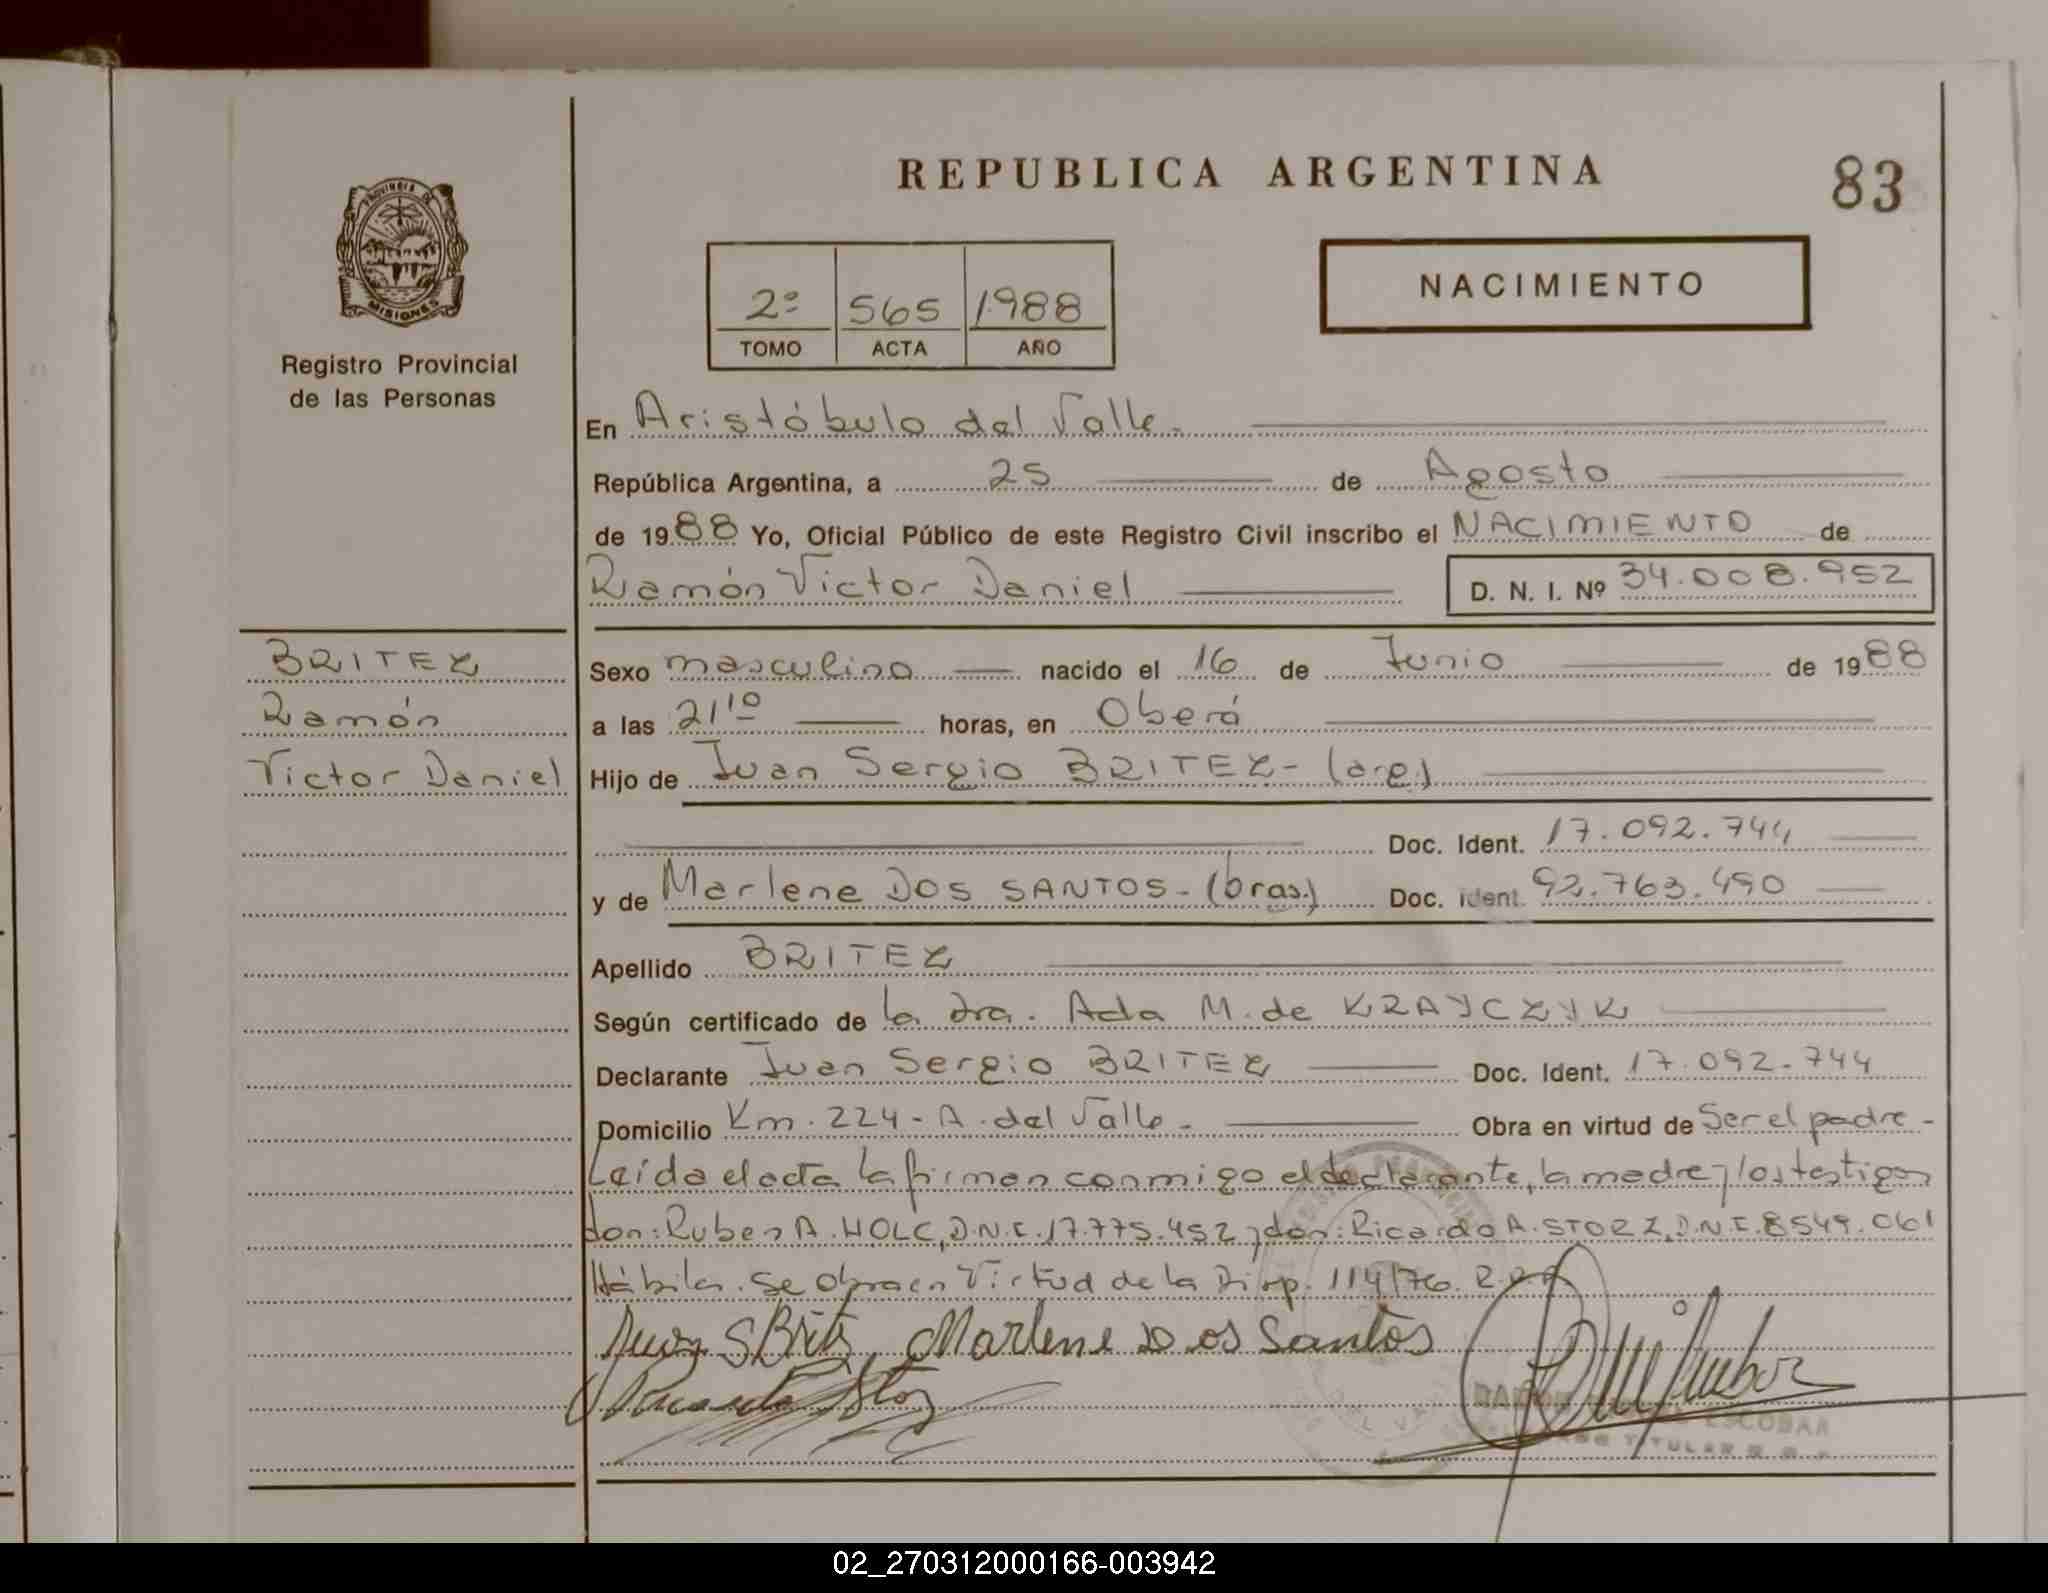 REPUBLICA ARGENTINA
83
PROVINCIA DE
MISIONES
Registro Provincial
de las Personas
2º 565 1988
TOMO ACTA AÑO
NACIMIENTO
En Aristóbulo del Valle.-
República Argentina, a 25 de Agosto
de 1988 Yo, Oficial Público de este Registro Civil inscribo el NACIMIENTO de
Ramón Victor Daniel D. N. I. Nº 34.008.952
BRITEZ
Ramón
Victor Daniel
Sexo masculino nacido el 16 de Junio de 1988
a las 21¹⁰ horas, en Oberá
Hijo de Juan Sergio BRITEZ- (arg.)
Doc. Ident. 17.092.744
y de Marlene DOS SANTOS- (bras.) Doc. ident. 92.763.490
Apellido BRITEZ
Según certificado de la dra. Ada M. de KRAYCZYK
Declarante Juan Sergio BRITEZ Doc. Ident. 17.092.744
Domicilio Km. 224- A. del Valle.- Obra en virtud de Ser el padre-
Leída el acta la firman conmigo el declarante, la madre y los testigos
don: Ruben A. HOLC, D.N.I. 17.775.452 y don: Ricardo A. STORZ, D.N.I. 8549.061
Hábiles. Se obra en Virtud de la Disp. 114/76. R.P.P.
Juan S Britz Marlene Dos Santos
ESCOBAR
TITULAR
02_270312000166-003942